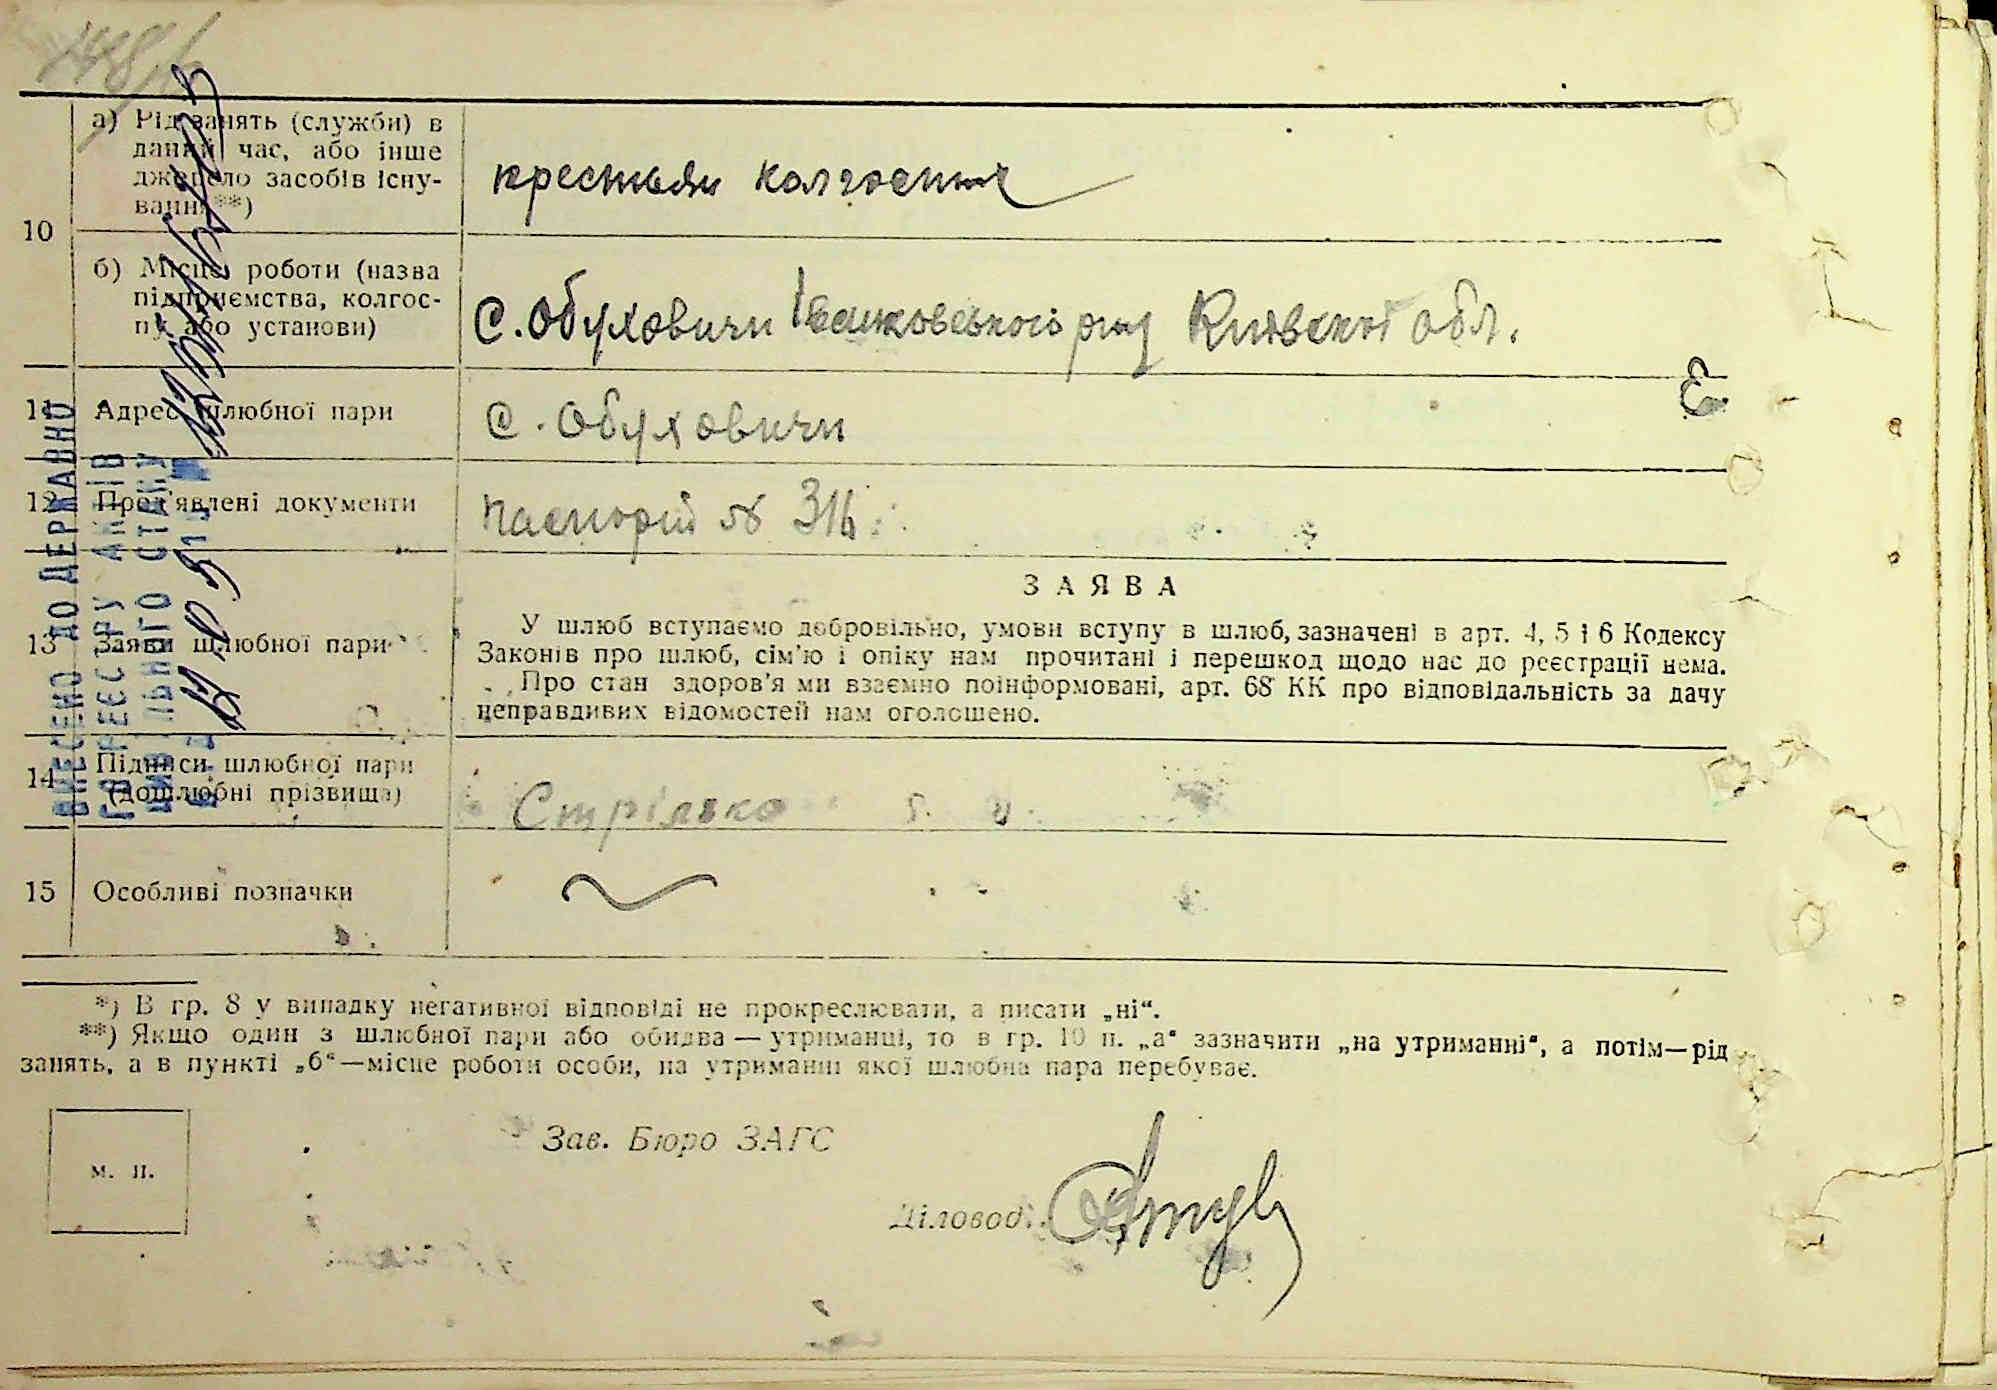 10
а) Рід занять (служби) в
даний час, або інше
джерело засобів існу-
вання**)
крестьян колгоспник
б) Місце роботи (назва
підприємства, колгос-
пу або установи)
С. Обуховичи Іванковського рну Київскої обл.
11 Адрес шлюбної пари
С. Обуховичи
12 Пред'явлені документи
паспорт № 316
13 Заяви шлюбної пари
ЗАЯВА
У шлюб вступаємо добровільно, умови вступу в шлюб, зазначені в арт. 4, 5 і 6 Кодексу
Законів про шлюб, сім'ю і опіку нам прочитані і перешкод щодо нас до реєстрації нема.
Про стан здоров'я ми взаємно поінформовані, арт. 68 КК про відповідальність за дачу
неправдивих відомостей нам оголошено.
14 Підписи шлюбної пари
(дошлюбні прізвища)
Стрілько
15 Особливі позначки
*) В гр. 8 у випадку негативної відповіді не прокреслювати, а писати „ні“.
**) Якщо один з шлюбної пари або обидва — утриманці, то в гр. 10 п. „а“ зазначити „на утриманні“, а потім—рід
занять, а в пункті „б“—місце роботи особи, на утриманні якої шлюбна пара перебуває.
м. п.
Зав. Бюро ЗАГС
Діловод:
ВНЕСЕНО ДО ДЕРЖАВНО
ГО РЕЄСТРУ АКТІВ
ЦИВІЛЬНОГО СТАНУ